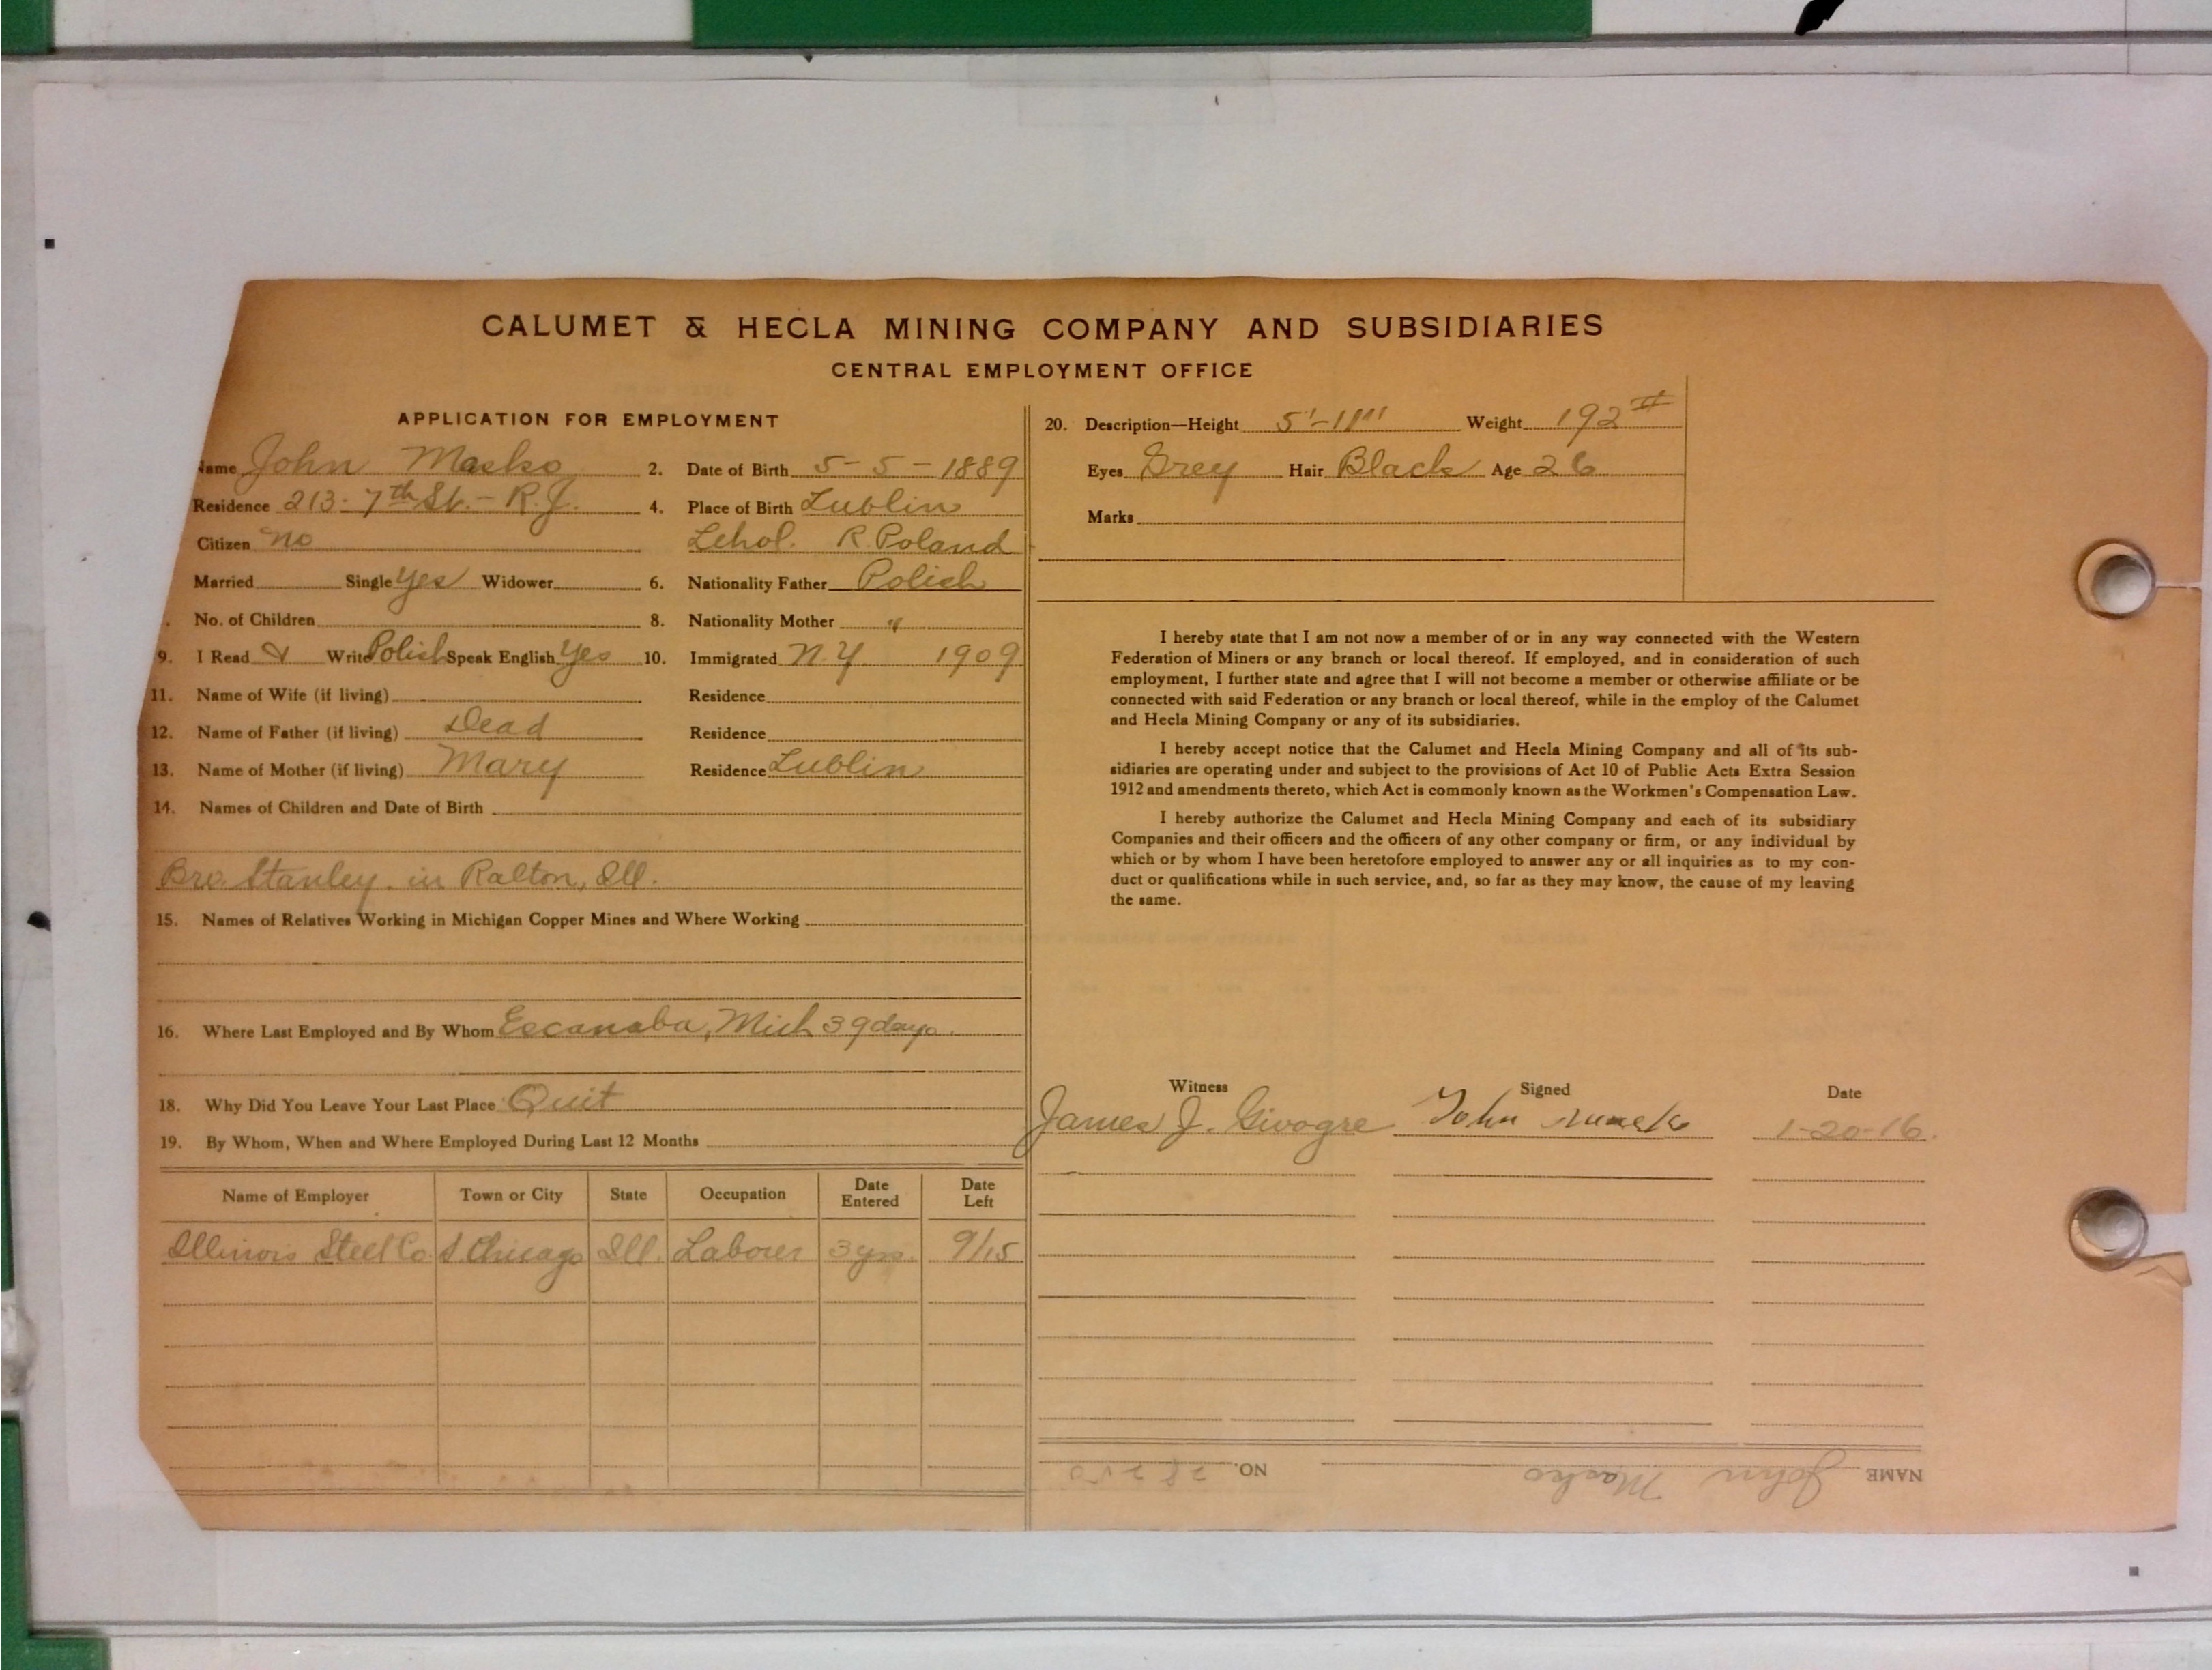 CALUMET & HECLA MINING COMPANY AND SUBSIDIARIES
CENTRAL EMPLOYMENT OFFICE
APPLICATION FOR EMPLOYMENT
Name John Masko 2. Date of Birth 5-5-1889
Residence 213-7th St.- R.J. 4. Place of Birth Lublin
Citizen no Lehol. R. Poland
Married Single Yes Widower 6. Nationality Father Polish
No. of Children 8. Nationality Mother "
9. I Read & Write Polish Speak English Yes 10. Immigrated N.Y. 1909
11. Name of Wife (if living) Residence
12. Name of Father (if living) Dead Residence
13. Name of Mother (if living) Mary Residence Lublin
14. Names of Children and Date of Birth
Bro. Stanley. in Ralton, Ill.
15. Names of Relatives Working in Michigan Copper Mines and Where Working
16. Where Last Employed and By Whom Escanaba, Mich 39 days.
18. Why Did You Leave Your Last Place Quit
19. By Whom, When and Where Employed During Last 12 Months
Name of Employer Town or City State Occupation Date Entered Date Left
Illinois Steel Co. S. Chicago Ill. Laborer 3 yrs. 9/15
20. Description—Height 5'-11" Weight 192 #
Eyes Grey Hair Black Age 26
Marks
I hereby state that I am not now a member of or in any way connected with the Western
Federation of Miners or any branch or local thereof. If employed, and in consideration of such
employment, I further state and agree that I will not become a member or otherwise affiliate or be
connected with said Federation or any branch or local thereof, while in the employ of the Calumet
and Hecla Mining Company or any of its subsidiaries.
I hereby accept notice that the Calumet and Hecla Mining Company and all of its sub-
sidiaries are operating under and subject to the provisions of Act 10 of Public Acts Extra Session
1912 and amendments thereto, which Act is commonly known as the Workmen's Compensation Law.
I hereby authorize the Calumet and Hecla Mining Company and each of its subsidiary
Companies and their officers and the officers of any other company or firm, or any individual by
which or by whom I have been heretofore employed to answer any or all inquiries as to my con-
duct or qualifications while in such service, and, so far as they may know, the cause of my leaving
the same.
Witness Signed Date
James J. Givogre John 1-20-16.
NAME John Masko NO.